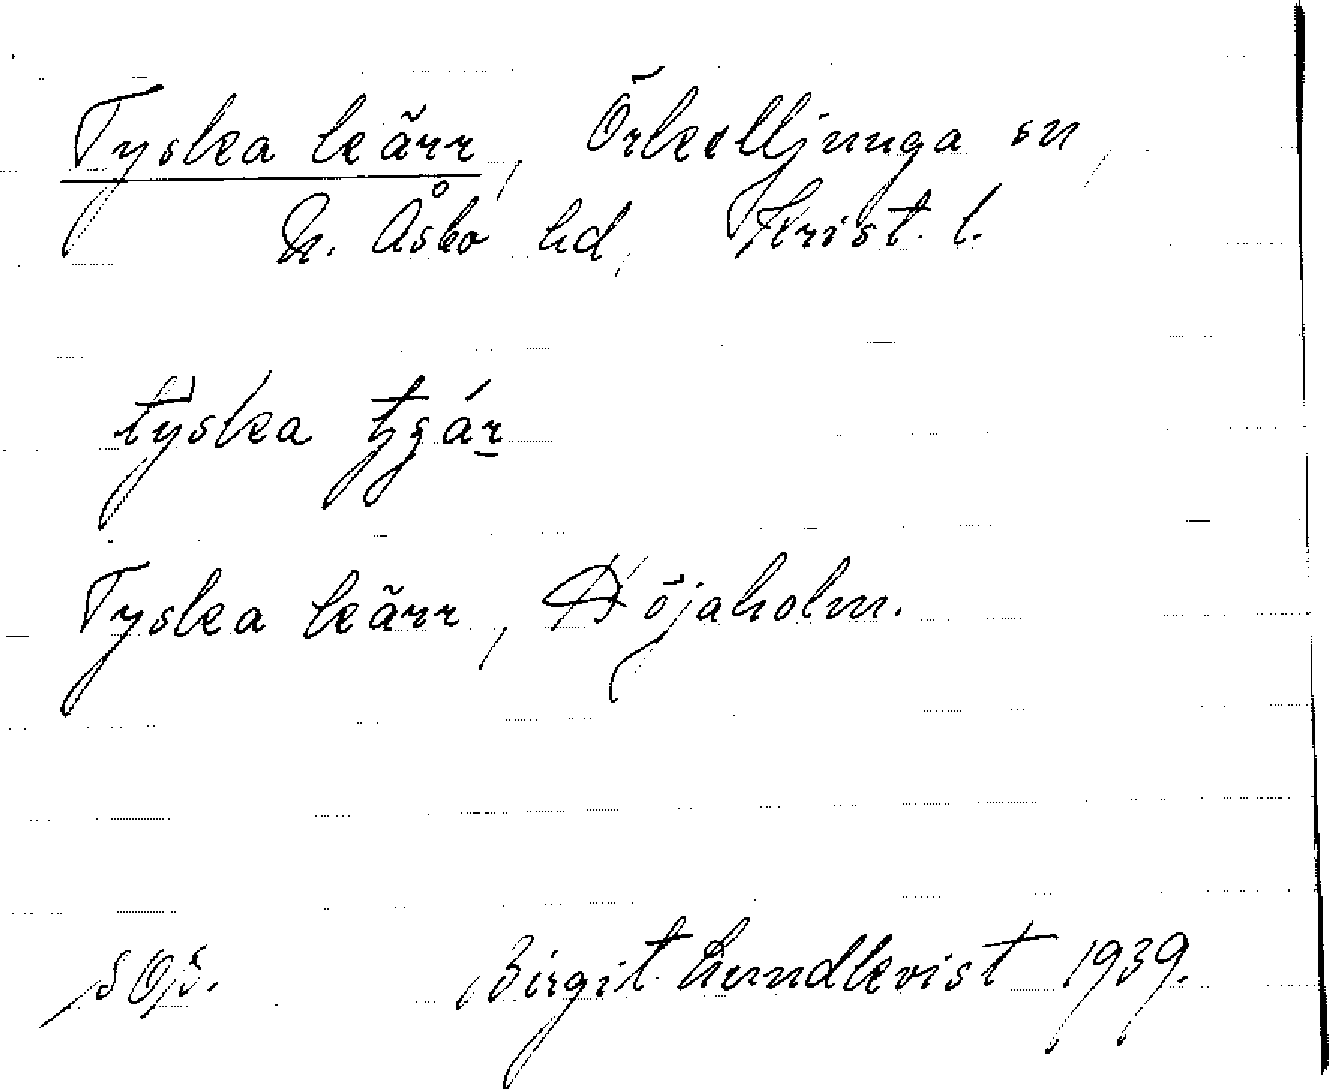 Tyska kärr, Örkelljunga sn,
N. Åsbo hd, Krist. l.
Tyska kärr, Höjaholm.
Birgit Lundkvist 1939.